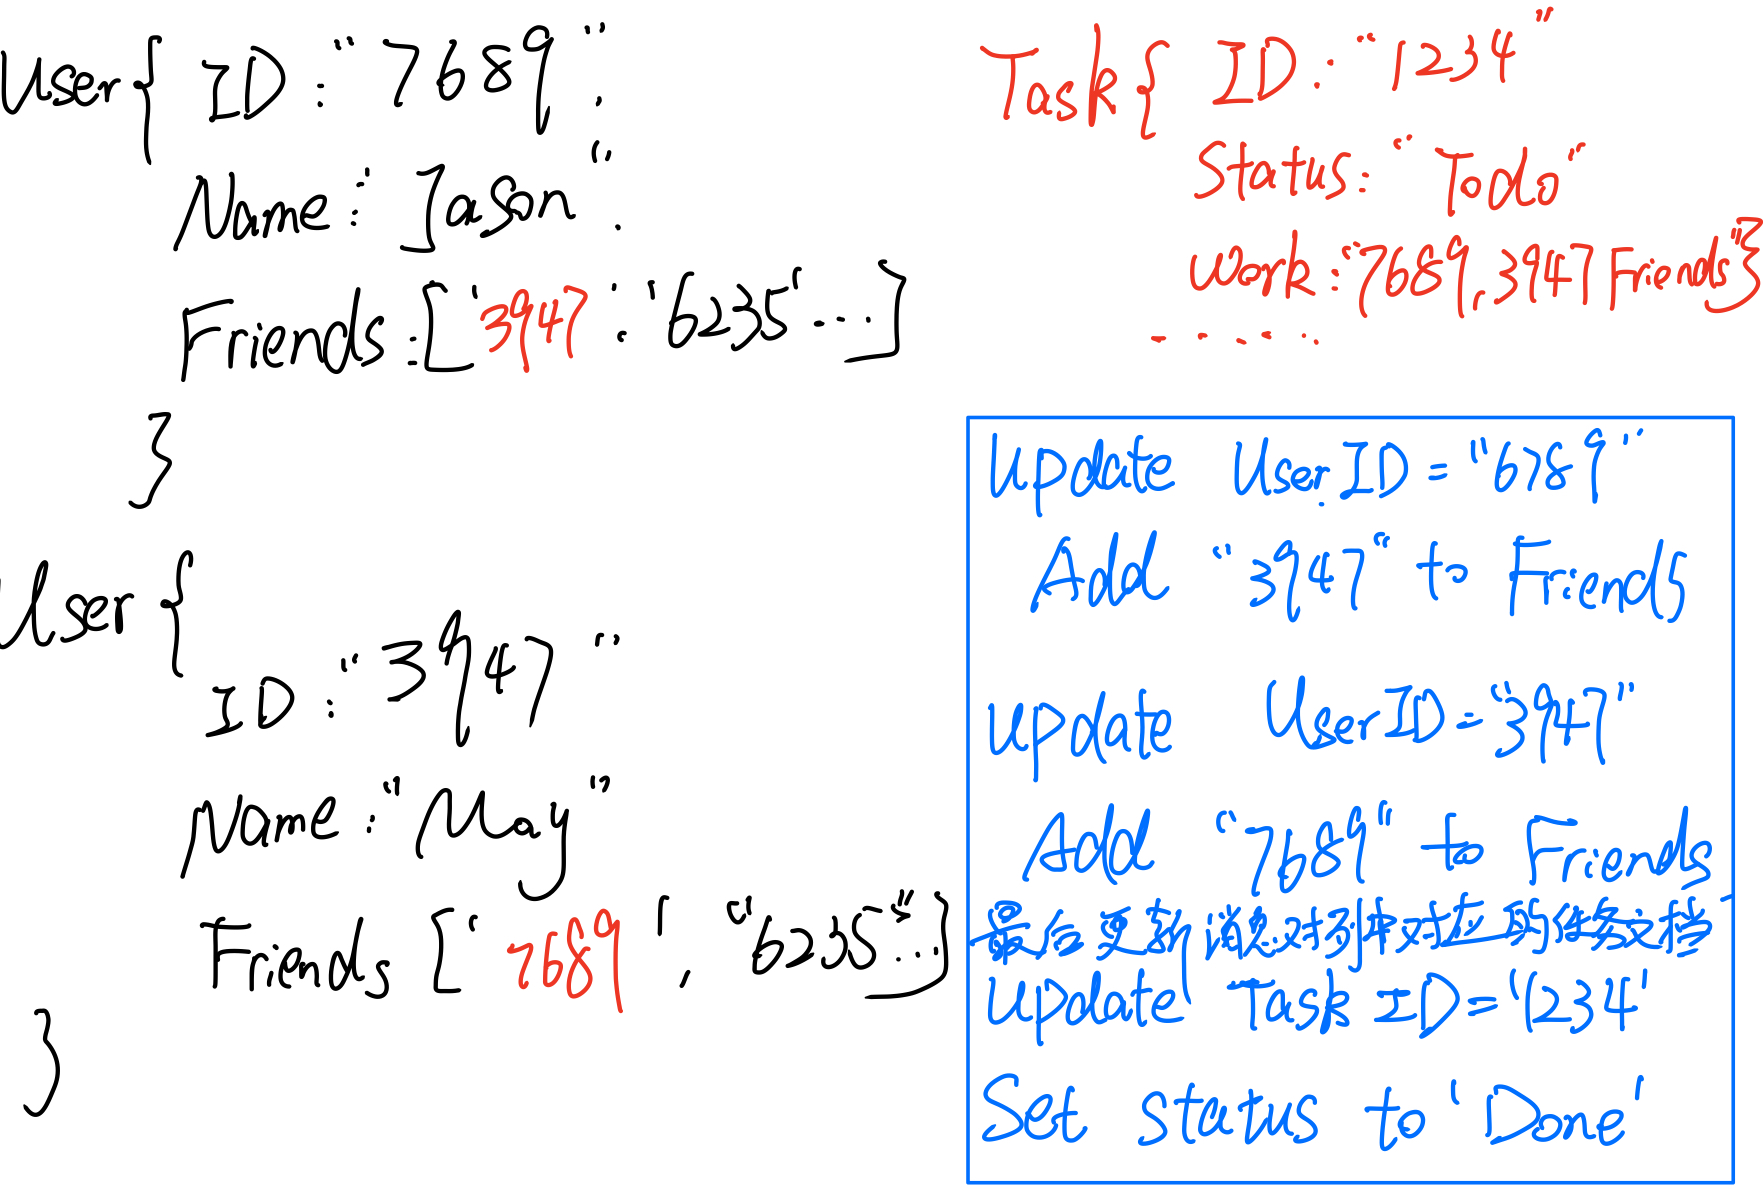 User{ ID:"7689",
Name:"Jason".
Friends:['3947','6235'...]
}
User{
ID:"3947"
Name:"May"
Friends['7689',"6235"...]
}
Task{ ID:"1234"
Status:"Todo"
Work:"7689,3947 Friends"}
.....
Update User.ID="6789"
Add "3947" to Friends
Update UserID="3947"
Add "7689" to Friends
最后更新消息对列中对应的任务文档
Update Task ID='1234'
Set status to 'Done'